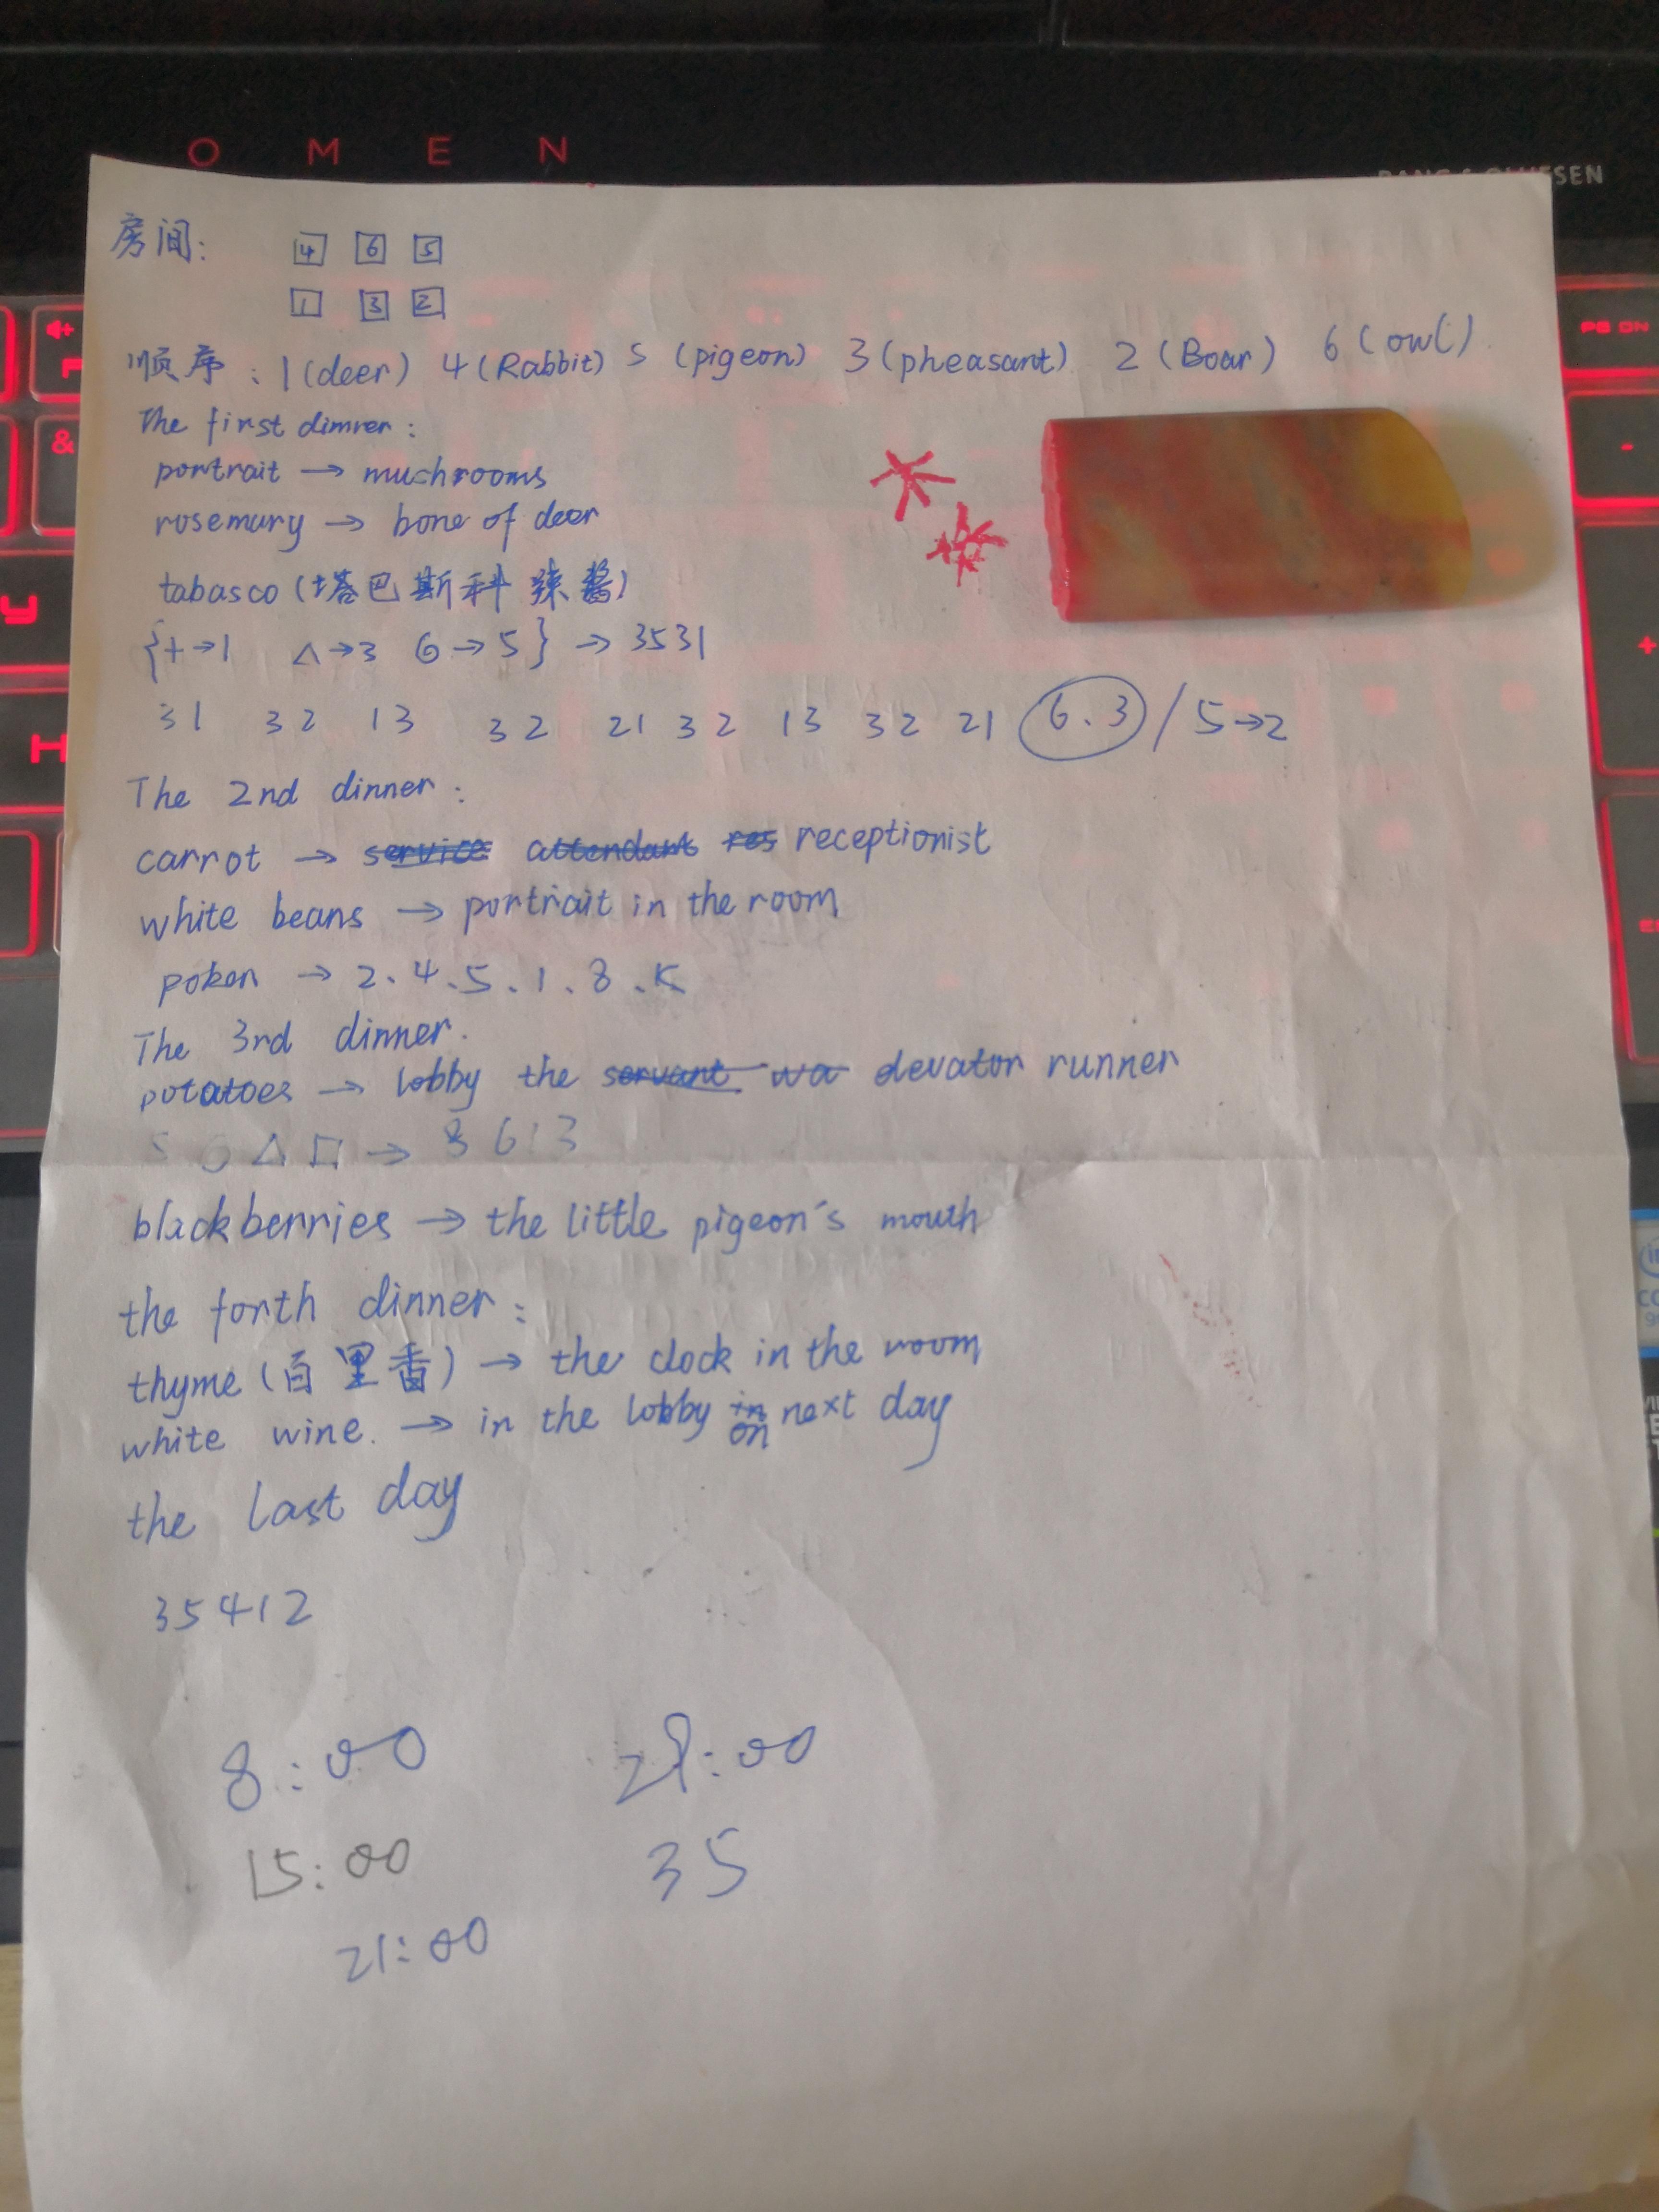 OMEN
房间:
4 6 5
1 3 2
顺序: 1(deer) 4(Rabbit) 5 (pigeon) 3(pheasant) 2(Boar) 6(owl)
The first dimner:
portrait → muchrooms
rosemary → bone of deer
tabasco(塔巴斯科辣酱)
{+→1 △→3 6→5} → 3531
31 32 13 32 21 32 13 32 21 6.3 / 5→2
The 2nd dinner:
carrot → service attendant res receptionist
white beans → portrait in the room
poker → 2.4.5.1.8.K
The 3rd dinner.
potatoes → lobby the servant wa elevator runner
△ □ → 8613
blackberries → the little pigeon's mouth
the forth dinner:
thyme(百里香) → the clock in the room
white wine. → in the lobby in on next day
the last day
35412
8:00
15:00 35
21:00